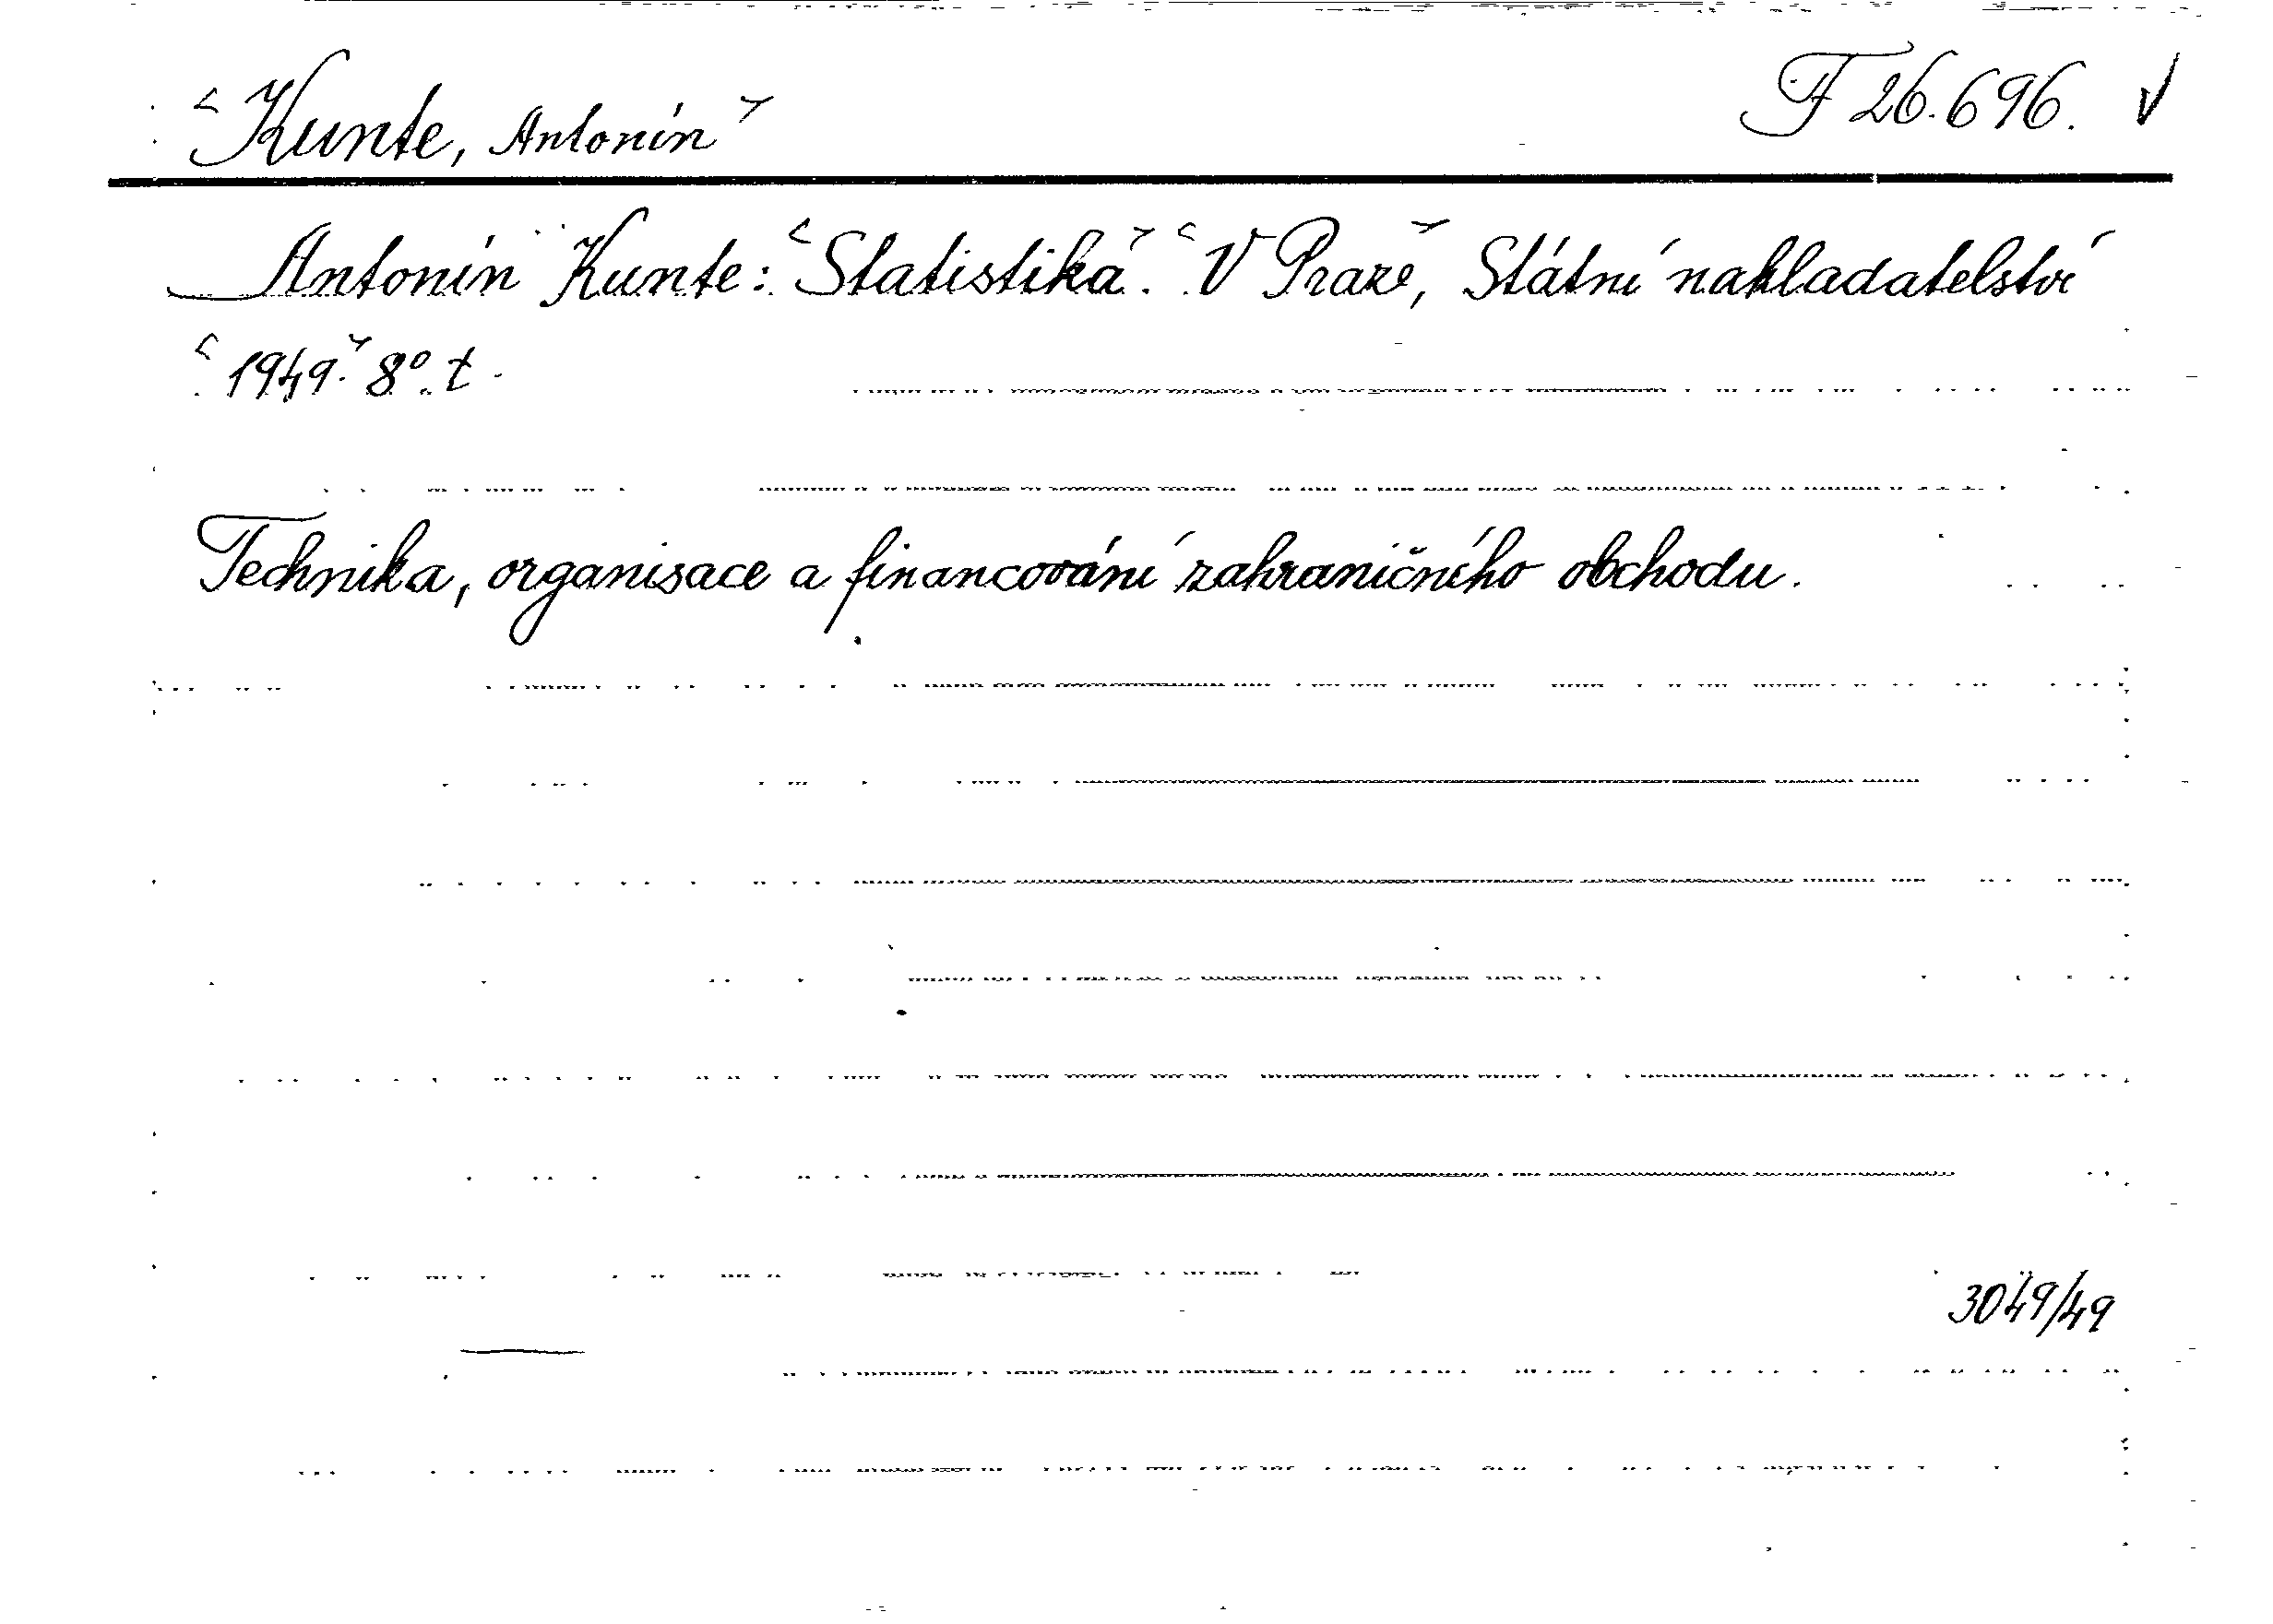 Kunte, Antonín F 26.696. √
Antonín Kunte: Statistika. V Praze, Státní nakladatelství
1949. 8°. t.
Technika, organisace a financování zahraničního obchodu.
3049/49